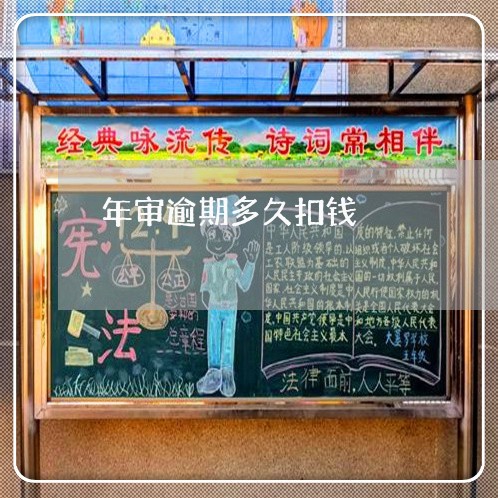 经典咏流传 诗词常相伴
年审逾期多久扣钱
12.4
宪法
公平
公正
总章程
中华人民共和国
是工人阶级领导的,以
工农联盟为基础的
人民民主专政的社会主义
国家,社会主义制度是中
华人民共和国的根本制
度,中国共产党领导是中
国特色社会主义最本
质的特征,禁止任何
组织或者个人破坏社会
主义制度,中华人民共和
国的一切权利属于人民,
人民行使国家权力的机
关是全国人民代表大会
和地方各级人民代表
大会.
五年级
法律面前,人人平等